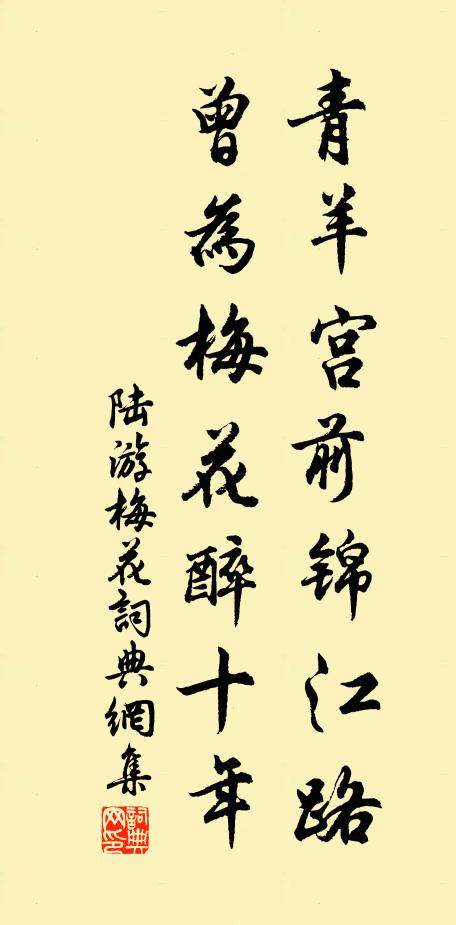 青羊宫前锦江路
曾為梅花醉十年
陆游梅花詞典網集
詞典網印